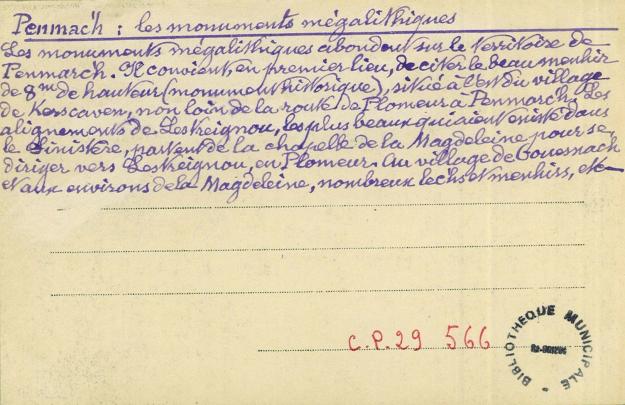 Penmac'h : les monuments mégalithiques
Les monuments mégalithiques abondent sur le territoire de
Penmarc'h. Il convient, en premier lieu, de citer le beau menhir
de 8m de hauteur (monument historique), situé à l'est du village
de Kerscaven, non loin de la route de Plomeur à Penmarc'h. Les
alignements de Leskeignou, les plus beaux qui aient existé dans
le Finistère, partent de la chapelle de la Magdeleine pour se
diriger vers Leskeignou, en Plomeur. Au village de Gouesnach
et aux environs de la Magdeleine, nombreux lechs et menhirs, etc
C.P.29 566
BIBLIOTHEQUE MUNICIPALE